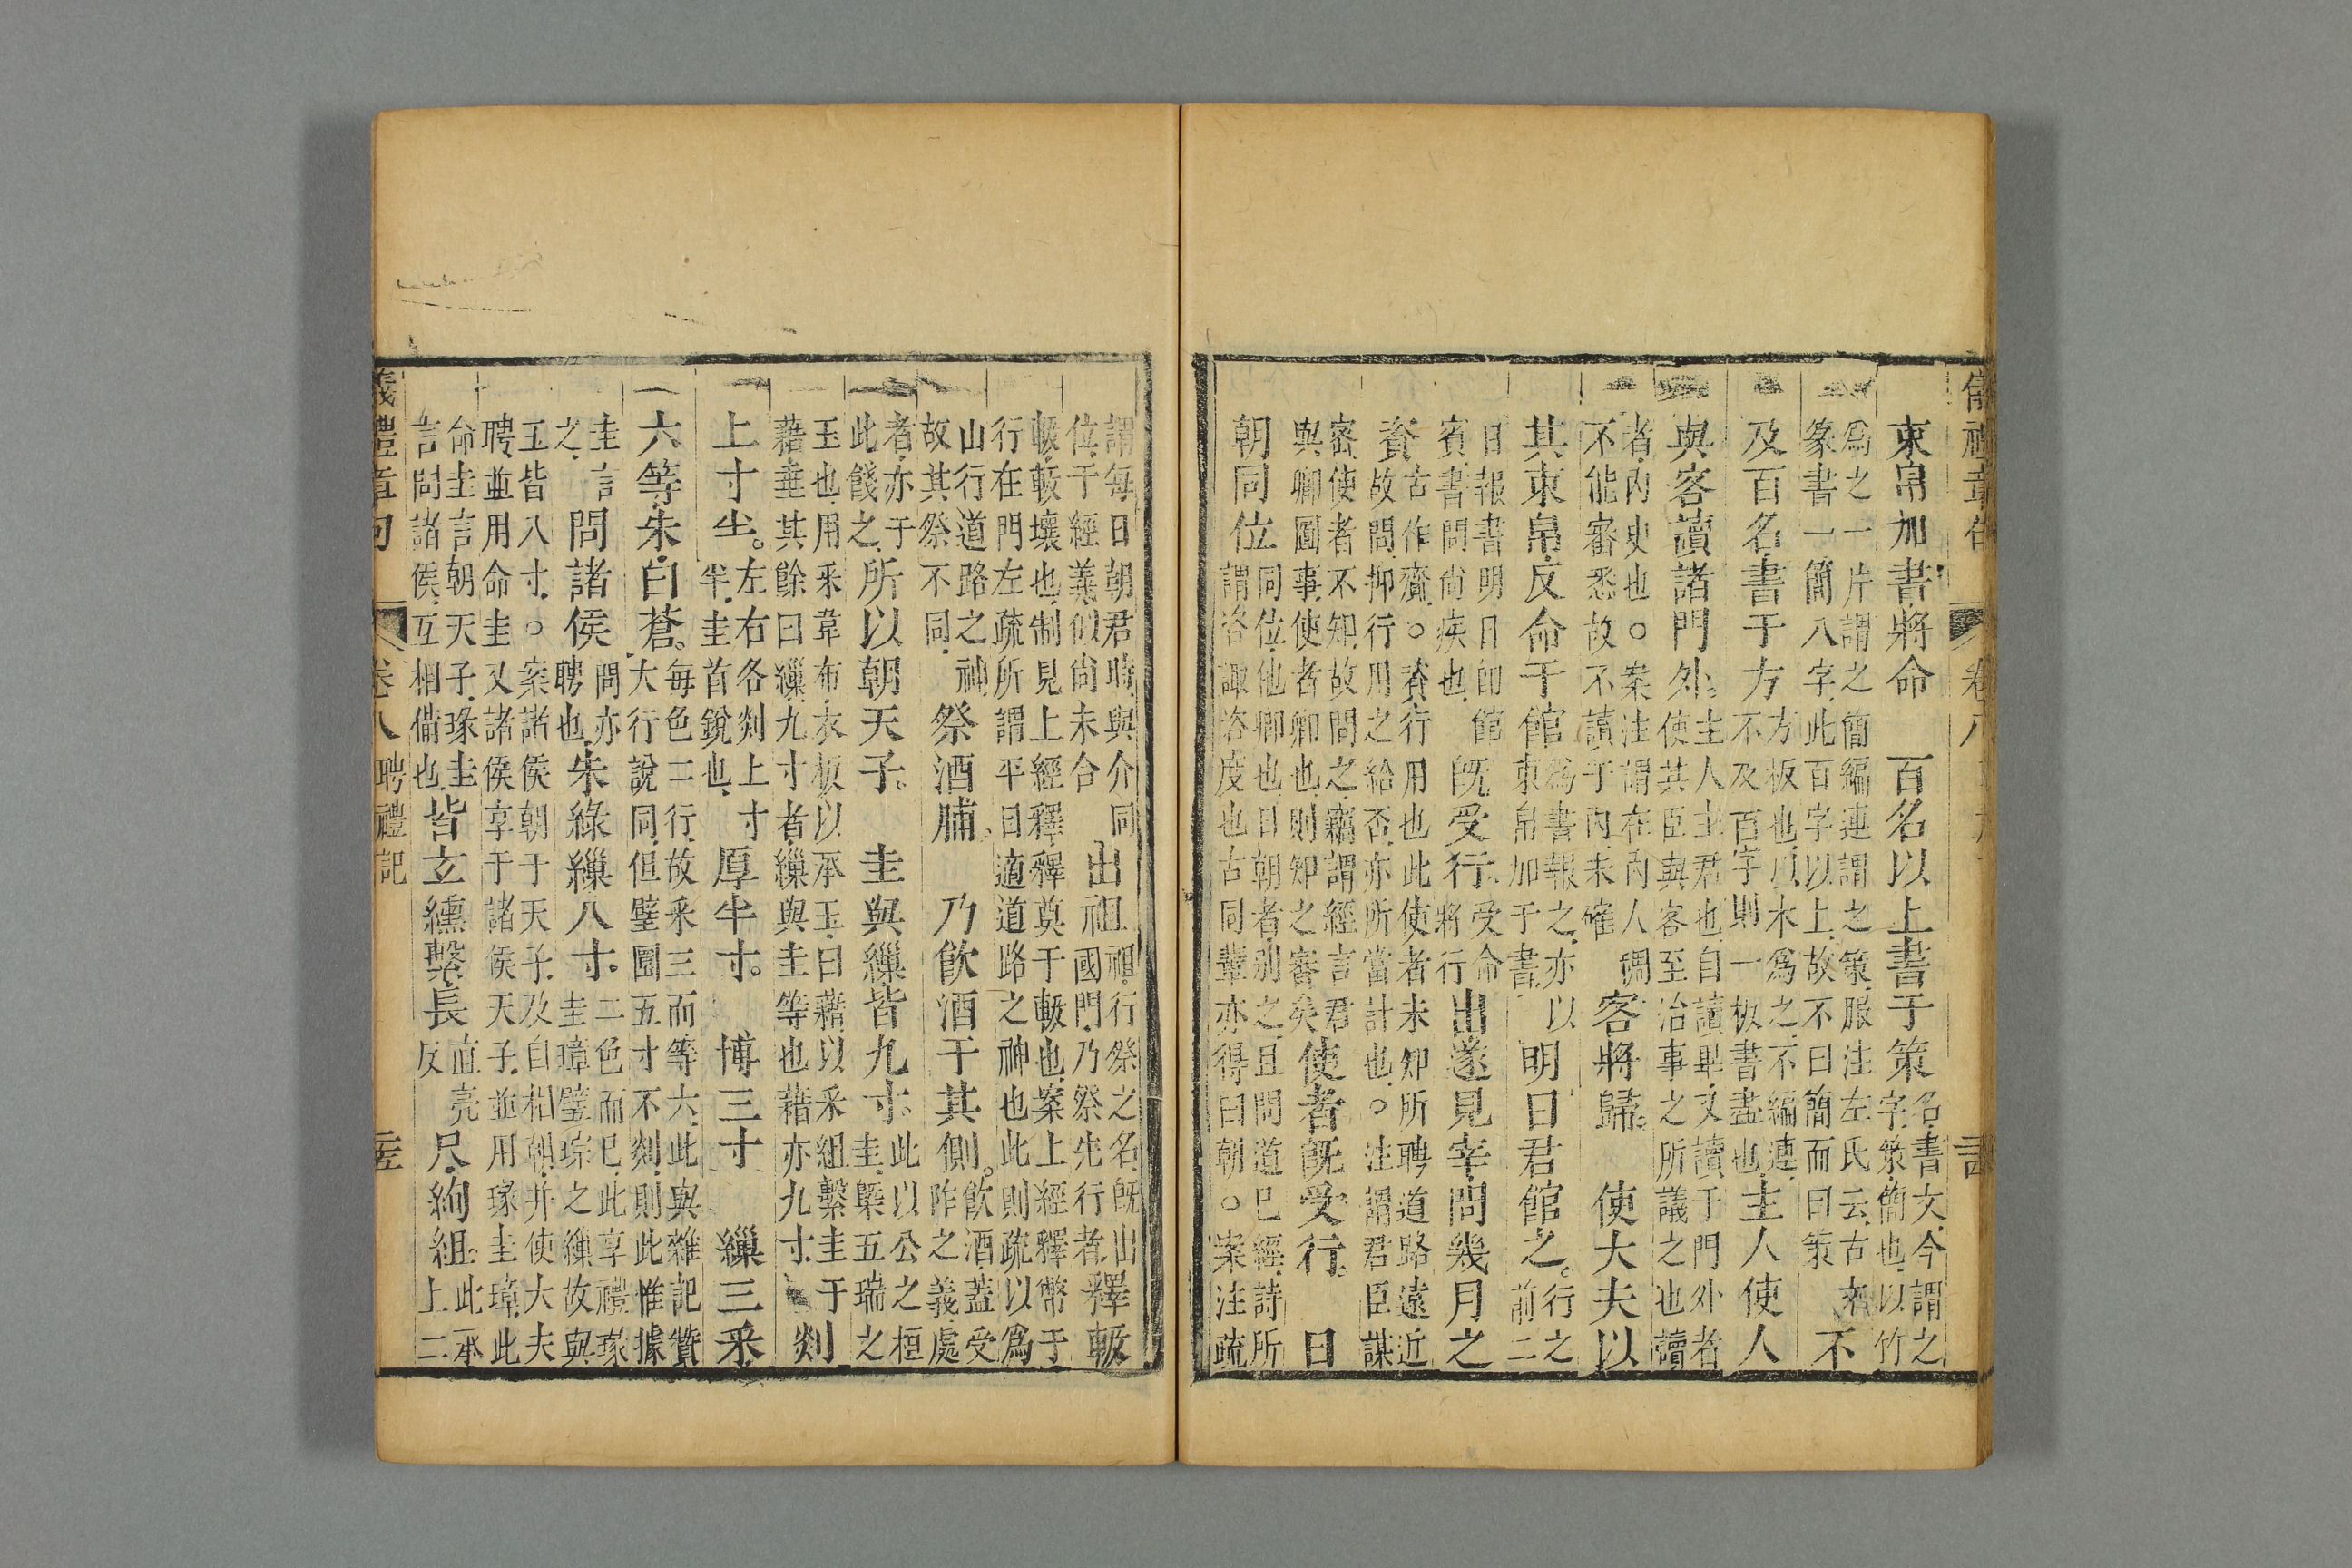 束帛加書將命　百名以上書于策名書文今謂之
字策簡也以竹
爲之一片謂之簡編連謂之策服注左氏云古文
篆書一簡八字此百字以上故不曰簡而曰策不
及百名書于方方板也以木爲之不編連
不及百字則一板書盡也主人使人
與客讀諸門外主人主君也自讀畢又讀于門外者
使其臣與客至治事之所議之也讀
者內史也○案注謂在內人稠
不能審悉故不讀于內未確客將歸使大夫以
其束帛反命于館爲書報之亦以
束帛加于書明日君館之行之
前二
日報書明日即館
賓書問尚疾也既受行受命
將行出遂見宰問幾月之
資古作齎○資行用也此使者未知所聘道路遠近
故問抑行用之給否亦所當計也○注謂君臣謀
密使者不知故問之竊謂經言君
與卿圖事使者卿也則知之審矣使者既受行日
朝同位同位他卿也日朝者別之且問道已經詩所
謂咨諏咨度也古同輩亦得曰朝○案注疏
謂每日朝君時與介同
位于經義似尚未合出祖祖行祭之名既出
國門乃祭先行者釋軷
軷軷壤也制見上經釋釋奠于軷也案上經釋幣于
行在門左疏所謂平日適道路之神也此則疏以爲
山行道路之神
故其祭不同祭酒脯乃飲酒于其側飲酒蓋受
阼之義處
者亦于
此餞之所以朝天子圭與繅皆九寸此以公之桓
圭槩五瑞之
玉也用釆韋布衣板以承玉曰藉以釆組繫圭于
藉垂其餘曰繅九寸者繅與圭等也藉亦九寸剡
上寸半左右各剡上寸
半圭首銳也厚半寸博三寸繅三釆
六等朱白蒼每色二行故釆三而等六此與雜記贊
大行說同但璧圜五寸不剡則此惟據
圭言
之問諸侯問亦
聘也朱綠繅八寸二色而已此享禮瑑
圭璋璧琮之繅故與
玉皆八寸○案諸侯朝于天子及自相朝并使大夫
聘並用命圭又諸侯享于諸侯天子並用瑑圭璋此
命圭言朝天子瑑圭
言問諸侯互相備也皆玄纁繫長直亮
反尺絢組此承
上二
儀禮章句　卷八　聘禮記